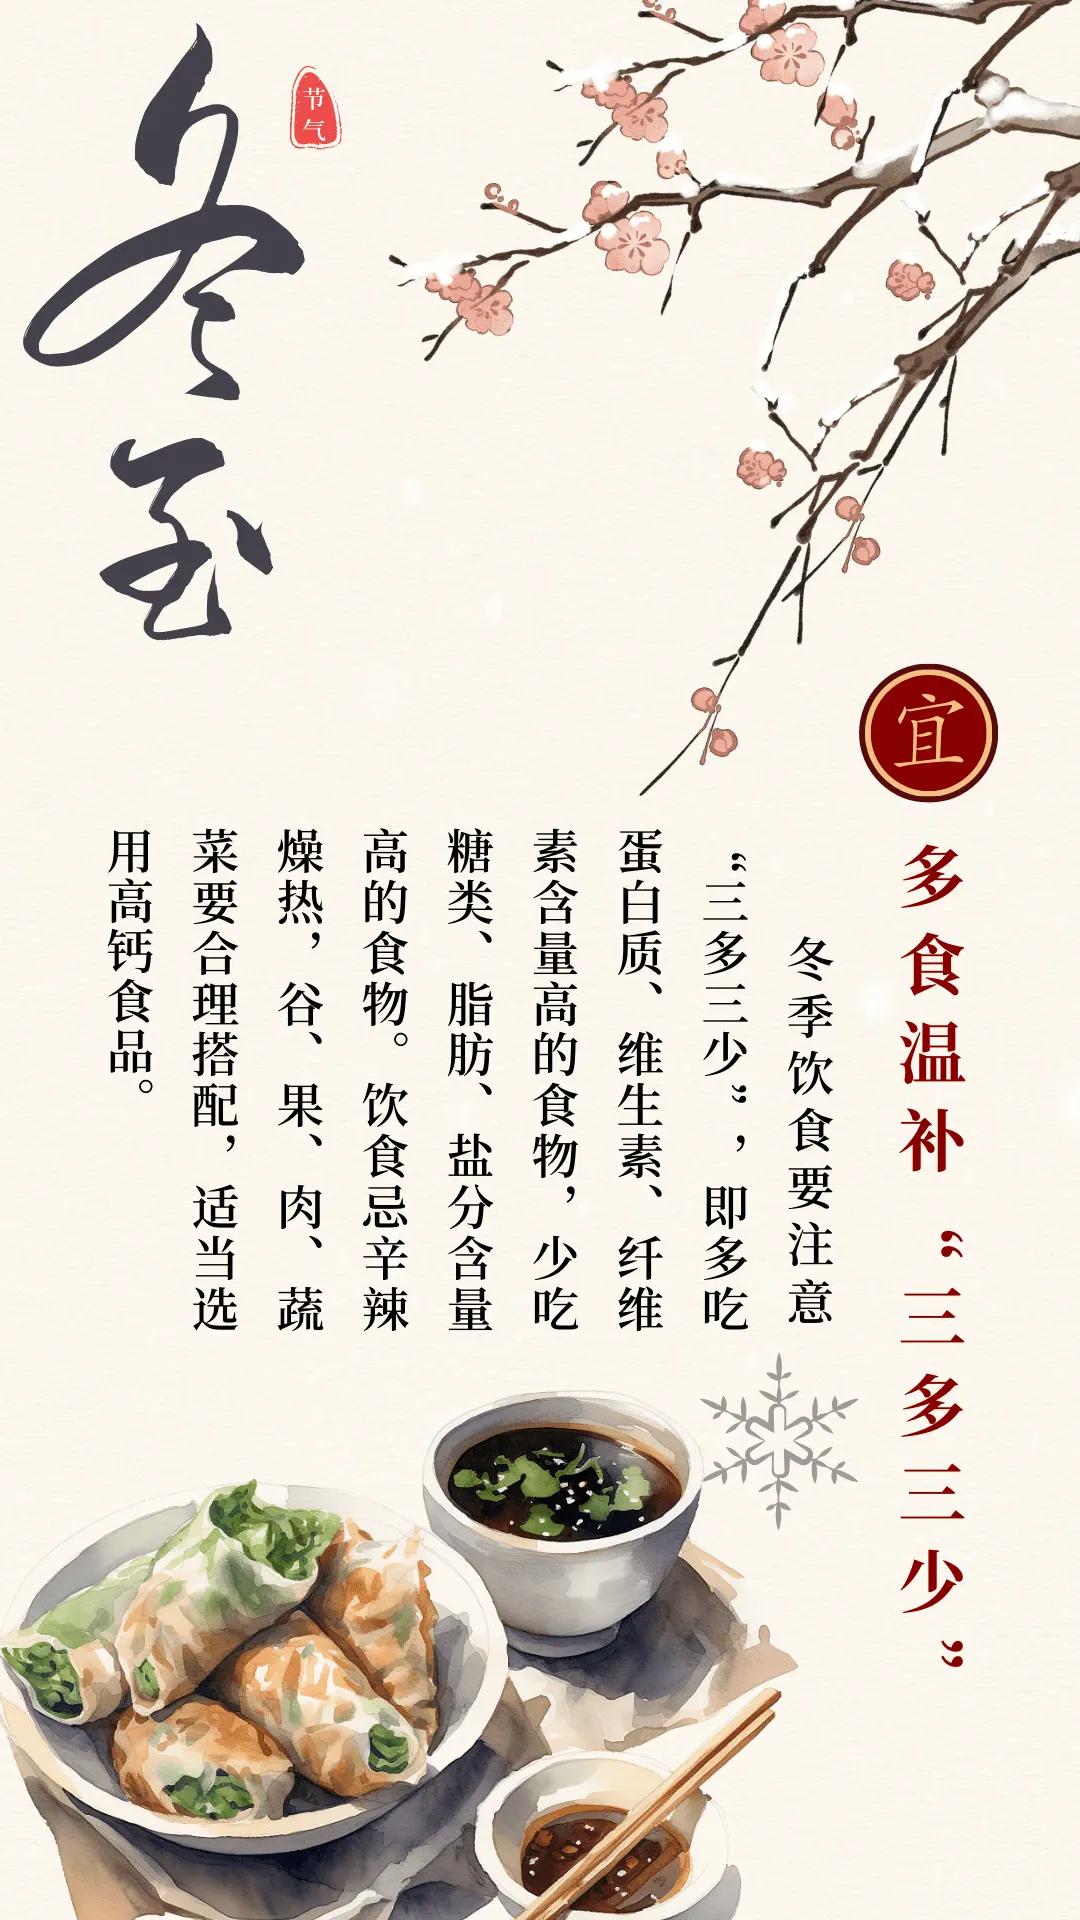 冬至
节气
宜
多食温补“三多三少”
冬季饮食要注意
“三多三少”，即多吃
蛋白质、维生素、纤维
素含量高的食物，少吃
糖类、脂肪、盐分含量
高的食物。饮食忌辛辣
燥热，谷、果、肉、蔬
菜要合理搭配，适当选
用高钙食品。